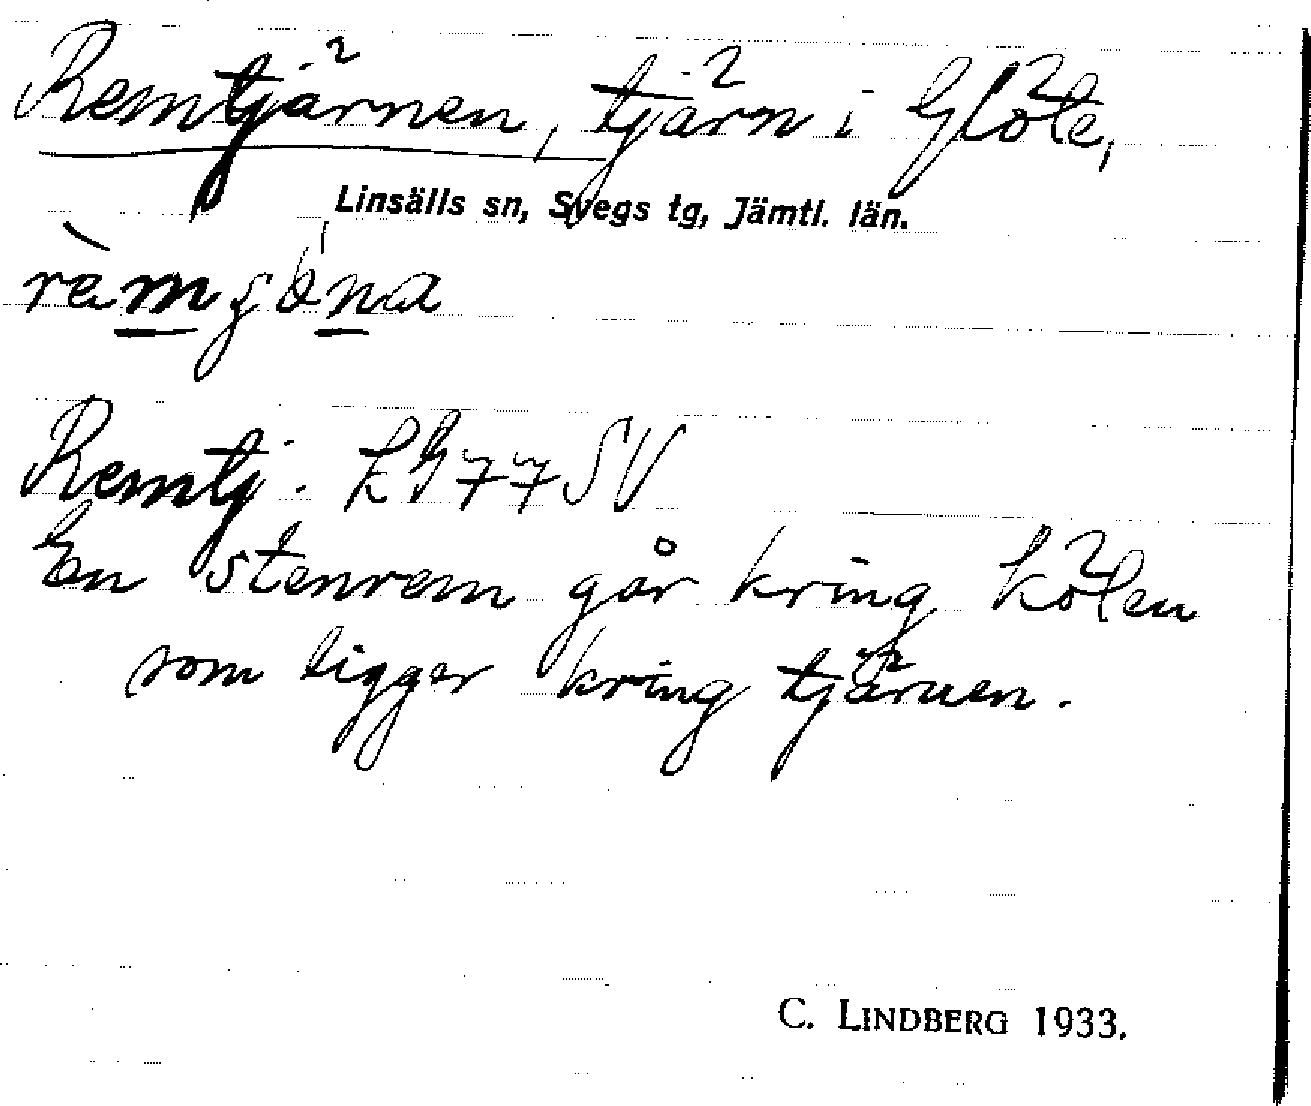 Remtjärnen, tjärn i Glöte,
Linsälls sn, Svegs tg, Jämtl. län.
Remtj. LG 77 SV
En stenrem går kring kölen
som ligger kring tjärnen.
C. LINDBERG 1933.